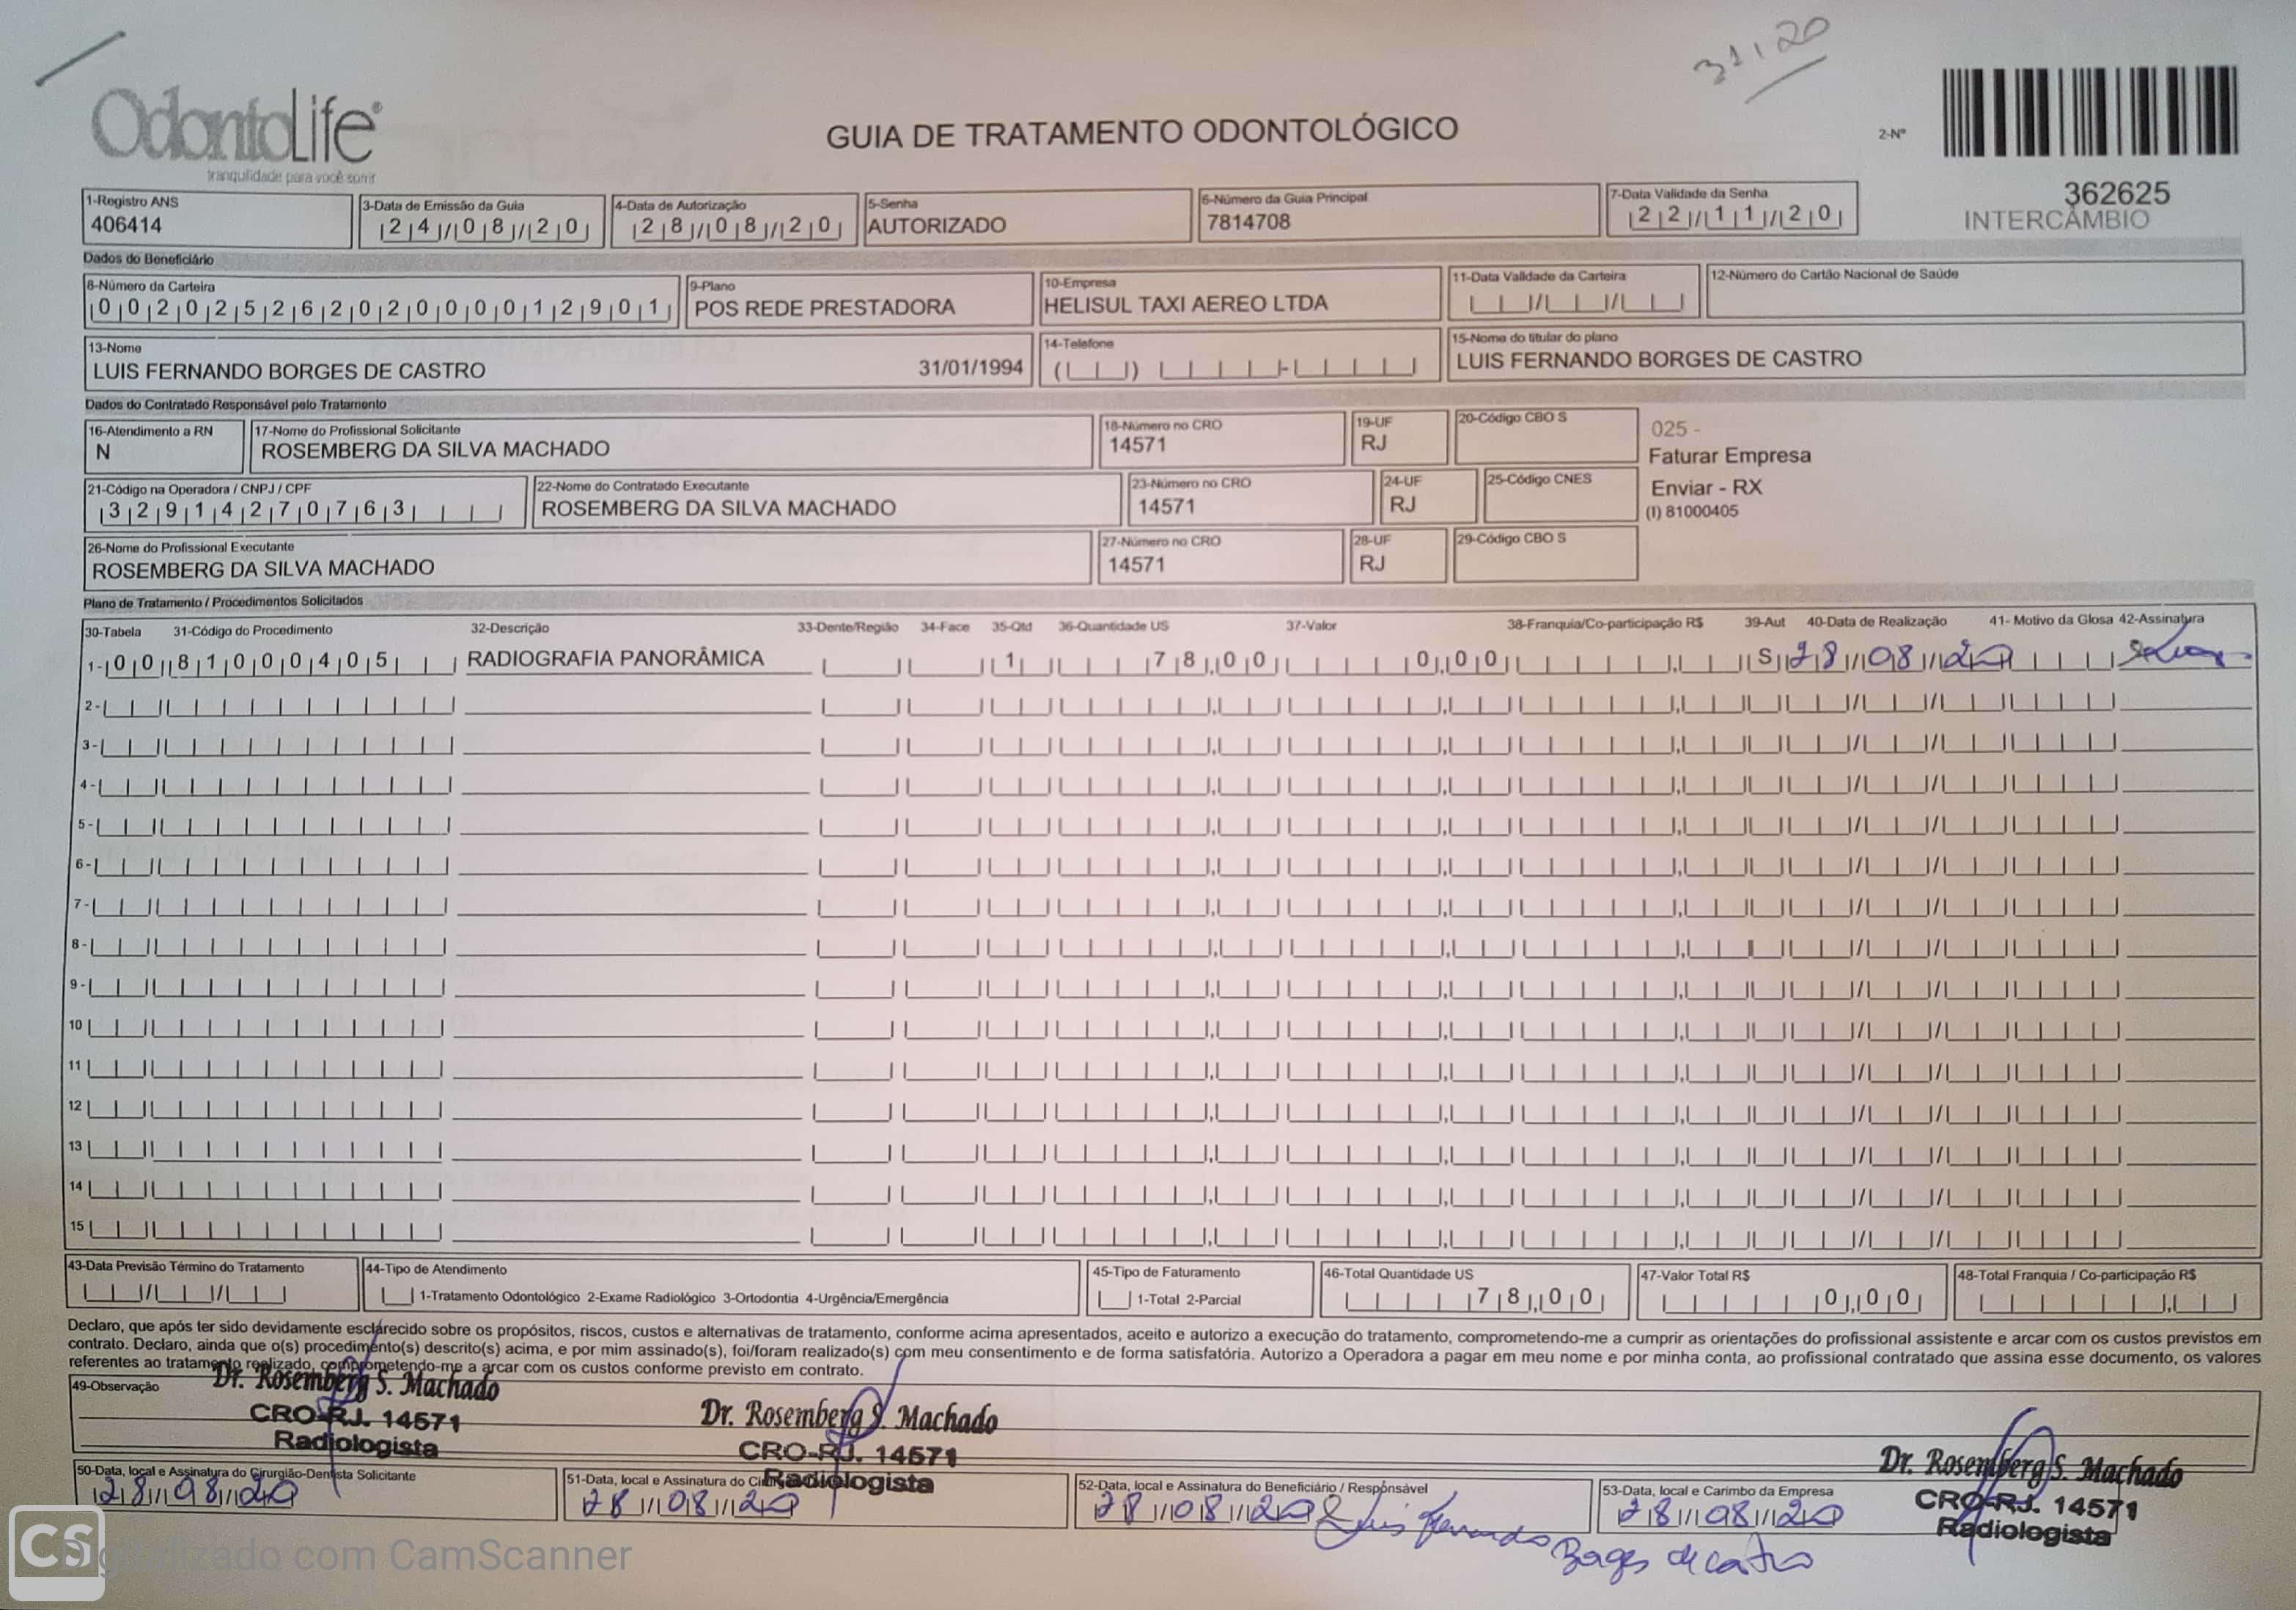 31,20
OdontoLife®
tranquilidade para você sorrir
GUIA DE TRATAMENTO ODONTOLÓGICO
2-Nº
362625
INTERCÂMBIO
1-Registro ANS
406414
3-Data de Emissão da Guia
24/08/20
4-Data de Autorização
28/08/20
5-Senha
AUTORIZADO
6-Número da Guia Principal
7814708
7-Data Validade da Senha
22/11/20
Dados do Beneficiário
8-Número da Carteira
00202526202000012901
9-Plano
POS REDE PRESTADORA
10-Empresa
HELISUL TAXI AEREO LTDA
11-Data Validade da Carteira
12-Número do Cartão Nacional de Saúde
13-Nome
LUIS FERNANDO BORGES DE CASTRO 31/01/1994
14-Telefone
15-Nome do titular do plano
LUIS FERNANDO BORGES DE CASTRO
Dados do Contratado Responsável pelo Tratamento
16-Atendimento a RN
N
17-Nome do Profissional Solicitante
ROSEMBERG DA SILVA MACHADO
18-Número no CRO
14571
19-UF
RJ
20-Código CBO S
025 -
Faturar Empresa
Enviar - RX
(I) 81000405
21-Código na Operadora / CNPJ / CPF
32914270763
22-Nome do Contratado Executante
ROSEMBERG DA SILVA MACHADO
23-Número no CRO
14571
24-UF
RJ
25-Código CNES
26-Nome do Profissional Executante
ROSEMBERG DA SILVA MACHADO
27-Número no CRO
14571
28-UF
RJ
29-Código CBO S
Plano de Tratamento / Procedimentos Solicitados
30-Tabela 31-Código do Procedimento 32-Descrição 33-Dente/Região 34-Face 35-Qtd 36-Quantidade US 37-Valor 38-Franquia/Co-participação R$ 39-Aut 40-Data de Realização 41- Motivo da Glosa 42-Assinatura
1- 00 81000405 RADIOGRAFIA PANORÂMICA 1 78,00 0,00 S 28/08/20
2-
3-
4-
5-
6-
7-
8-
9-
10
11
12
13
14
15
43-Data Previsão Término do Tratamento
44-Tipo de Atendimento
1-Tratamento Odontológico 2-Exame Radiológico 3-Ortodontia 4-Urgência/Emergência
45-Tipo de Faturamento
1-Total 2-Parcial
46-Total Quantidade US
78,00
47-Valor Total R$
0,00
48-Total Franquia / Co-participação R$
Declaro, que após ter sido devidamente esclarecido sobre os propósitos, riscos, custos e alternativas de tratamento, conforme acima apresentados, aceito e autorizo a execução do tratamento, comprometendo-me a cumprir as orientações do profissional assistente e arcar com os custos previstos em
contrato. Declaro, ainda que o(s) procedimento(s) descrito(s) acima, e por mim assinado(s), foi/foram realizado(s) com meu consentimento e de forma satisfatória. Autorizo a Operadora a pagar em meu nome e por minha conta, ao profissional contratado que assina esse documento, os valores
referentes ao tratamento realizado, comprometendo-me a arcar com os custos conforme previsto em contrato.
49-Observação
Dr. Rosemberg S. Machado
CRO-RJ. 14571
Radiologista
Dr. Rosemberg S. Machado
CRO-RJ. 14571
Radiologista
Dr. Rosemberg S. Machado
CRO-RJ. 14571
Radiologista
50-Data, local e Assinatura do Cirurgião-Dentista Solicitante
28/08/20
51-Data, local e Assinatura do
28/08/20
52-Data, local e Assinatura do Beneficiário / Responsável
28/08/20 Luis Fernando
Borges de Castro
53-Data, local e Carimbo da Empresa
28/08/20
CS
Digitalizado com CamScanner